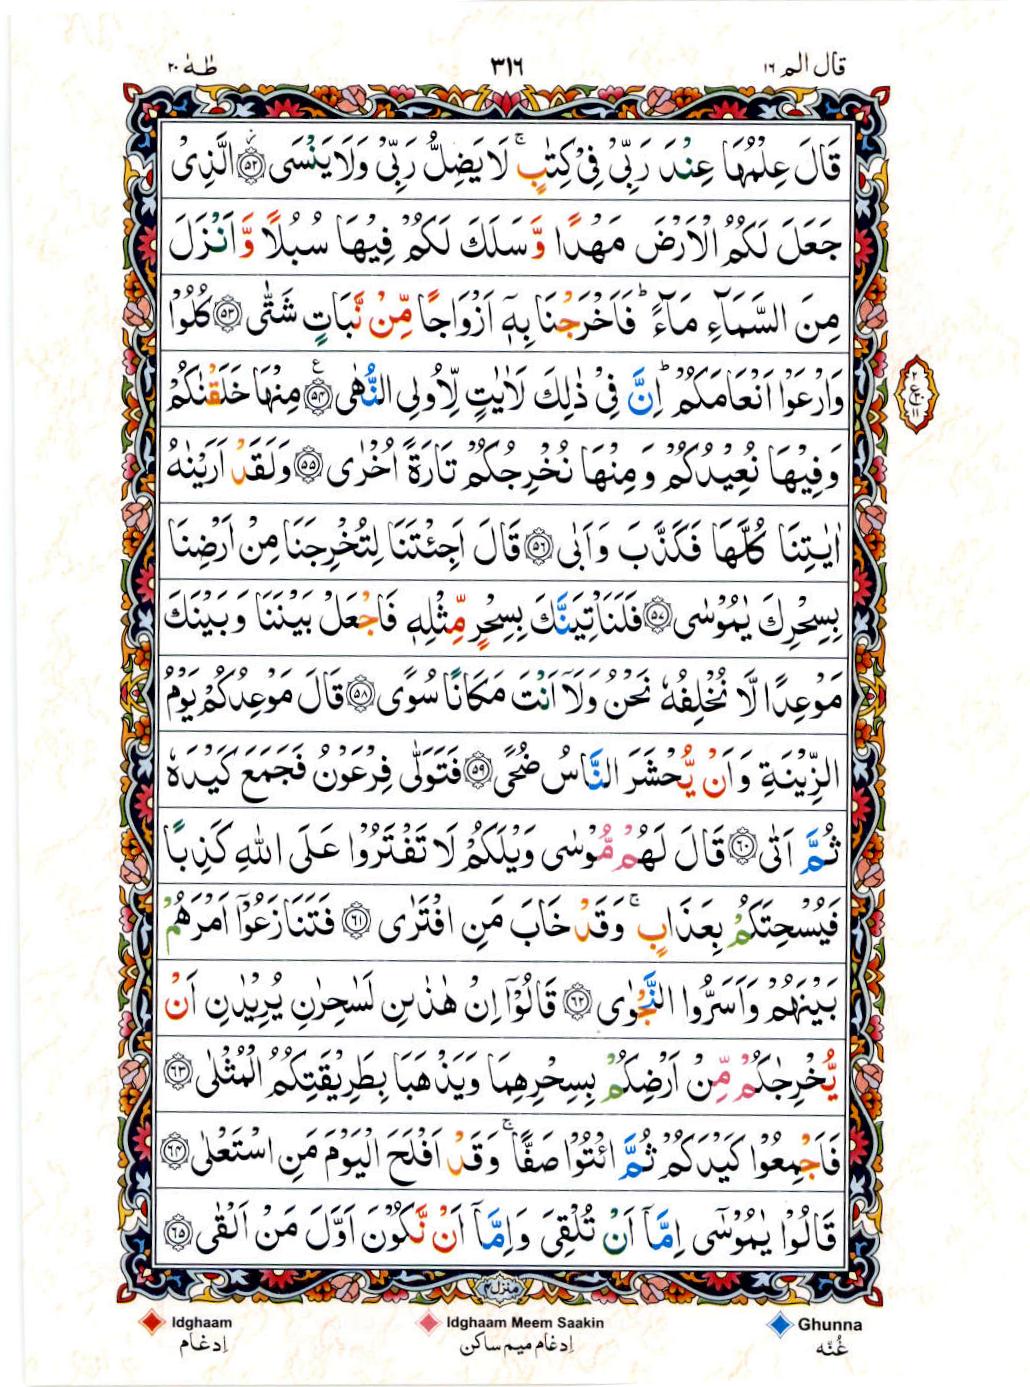 قال الم ١٦
٣١٦
طٰهٰ ٢٠
قَالَ عِلْمُهَا عِنْدَ رَبِّیْ فِیْ كِتٰبٍ ۚ لَا یَضِلُّ رَبِّیْ وَلَا یَنْسَی ﴿۵۲﴾ الَّذِیْ
جَعَلَ لَكُمُ الْاَرْضَ مَهْدًا وَّسَلَكَ لَكُمْ فِیْهَا سُبُلًا وَّاَنْزَلَ
مِنَ السَّمَآءِ مَآءً ؕ فَاَخْرَجْنَا بِهٖۤ اَزْوَاجًا مِّنْ نَّبَاتٍ شَتّٰی ﴿۵۳﴾ كُلُوْا
وَارْعَوْا اَنْعَامَكُمْ ؕ اِنَّ فِیْ ذٰلِكَ لَاٰیٰتٍ لِّاُولِی النُّهٰی ﴿۵۴﴾ مِنْهَا خَلَقْنٰكُمْ
وَفِیْهَا نُعِیْدُكُمْ وَمِنْهَا نُخْرِجُكُمْ تَارَةً اُخْرٰی ﴿۵۵﴾ وَلَقَدْ اَرَیْنٰهُ
اٰیٰتِنَا كُلَّهَا فَكَذَّبَ وَاَبٰی ﴿۵۶﴾ قَالَ اَجِئْتَنَا لِتُخْرِجَنَا مِنْ اَرْضِنَا
بِسِحْرِكَ یٰمُوْسٰی ﴿۵۷﴾ فَلَنَاْتِیَنَّكَ بِسِحْرٍ مِّثْلِهٖ فَاجْعَلْ بَیْنَنَا وَبَیْنَكَ
مَوْعِدًا لَّا نُخْلِفُهٗ نَحْنُ وَلَاۤ اَنْتَ مَكَانًا سُوًی ﴿۵۸﴾ قَالَ مَوْعِدُكُمْ یَوْمُ
الزِّیْنَةِ وَاَنْ یُّحْشَرَ النَّاسُ ضُحًی ﴿۵۹﴾ فَتَوَلّٰی فِرْعَوْنُ فَجَمَعَ كَیْدَهٗ
ثُمَّ اَتٰی ﴿۶۰﴾ قَالَ لَهُمْ مُّوْسٰی وَیْلَكُمْ لَا تَفْتَرُوْا عَلَی اللّٰهِ كَذِبًا
فَیُسْحِتَكُمْ بِعَذَابٍ ۚ وَقَدْ خَابَ مَنِ افْتَرٰی ﴿۶۱﴾ فَتَنَازَعُوْۤا اَمْرَهُمْ
بَیْنَهُمْ وَاَسَرُّوا النَّجْوٰی ﴿۶۲﴾ قَالُوْۤا اِنْ هٰذٰىنِ لَسٰحِرٰنِ یُرِیْدٰنِ اَنْ
یُّخْرِجٰكُمْ مِّنْ اَرْضِكُمْ بِسِحْرِهِمَا وَیَذْهَبَا بِطَرِیْقَتِكُمُ الْمُثْلٰی ﴿۶۳﴾
فَاَجْمِعُوْا كَیْدَكُمْ ثُمَّ ائْتُوْا صَفًّا ۚ وَقَدْ اَفْلَحَ الْیَوْمَ مَنِ اسْتَعْلٰی ﴿۶۴﴾
قَالُوْا یٰمُوْسٰۤی اِمَّاۤ اَنْ تُلْقِیَ وَاِمَّاۤ اَنْ نَّكُوْنَ اَوَّلَ مَنْ اَلْقٰی ﴿۶۵﴾
منزل ۴
Ghunna
غُنّه
Idghaam Meem Saakin
اِدغام میم ساکن
Idghaam
اِدغام